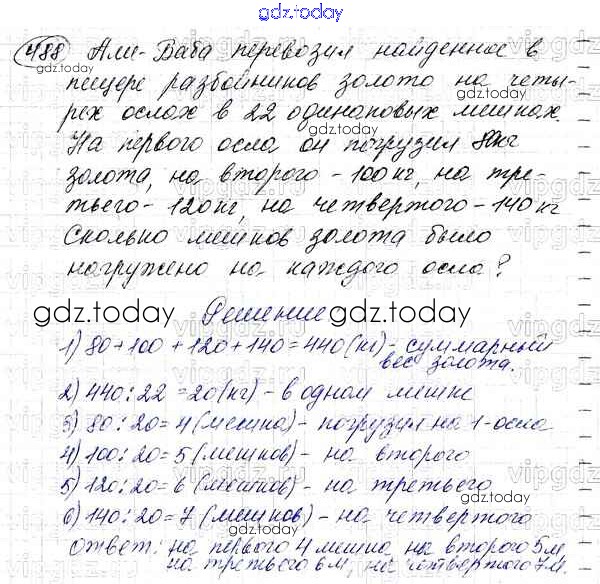 gdz.today
488 Али-Баба перевозил найденное в
пещере разбойников золото на четы-
рех ослах в 22 одинаковых мешках
На первого осла он погрузил 80кг
золота, на второго - 100кг, на тре-
тьего - 120кг, на четвертого - 140кг
Сколько мешков золота было
нагружено на каждого осла?
gdz.today
Решение
gdz.today
1) 80+100+120+140=440(кг) - суммарный
вес золота.
2) 440:22=20(кг) - в одном мешке
3) 80:20=4(мешка) - погрузил на 1-осла
4) 100:20=5(мешков) - на второго
5) 120:20=6(мешков) - на третьего
6) 140:20=7(мешков) - на четвертого
Ответ: на первого 4 мешка на второго 5м
на третьего 6м, на четвертого 7м.